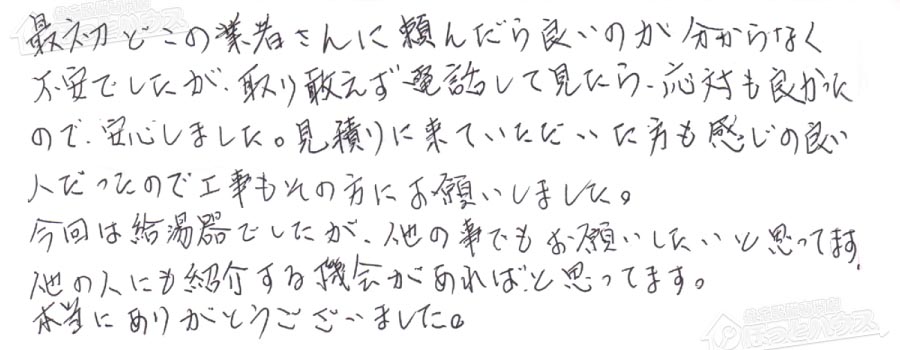 最初どこの業者さんに頼んだら良いのが分からなく
不安でしたが、取り敢えず電話して見たら、応対も良かった
ので、安心しました。見積りに来ていただいた方も感じの良い
人だったので工事もその方にお願いしました。
今回は給湯器でしたが、他の事でもお願いしたいと思ってます。
他の人にも紹介する機会があればと思ってます。
本当にありがとうございました。